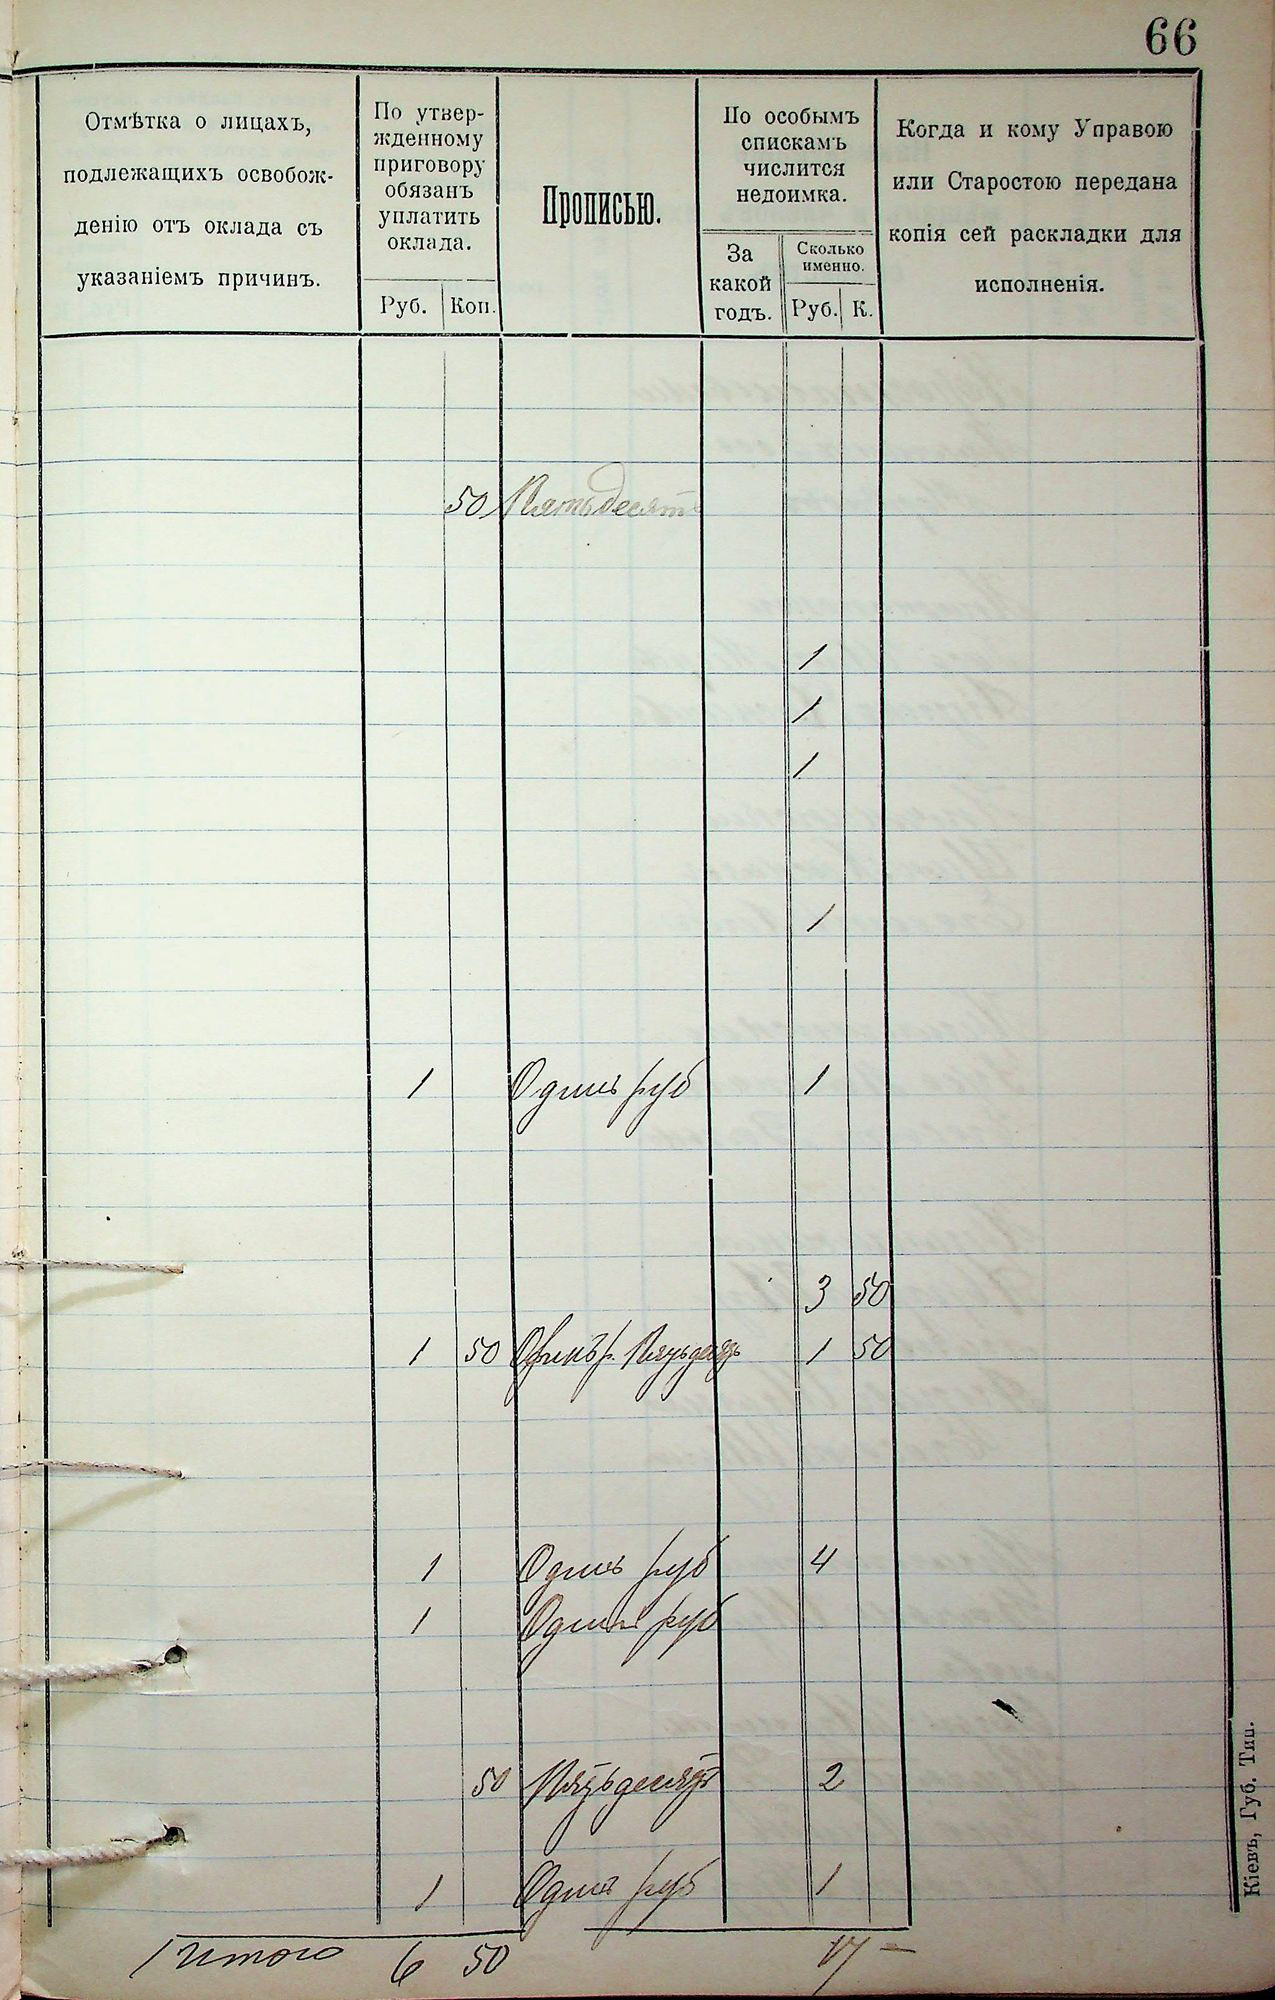 66
Отмѣтка о лицахъ,
подлежащихъ освобож-
денію отъ оклада съ
указаніемъ причинъ.
По утвер-
жденному
приговору
обязанъ
уплатить
оклада.
Руб. Коп.
Прописью.
По особымъ
спискамъ
числится
недоимка.
За
какой
годъ.
Сколько
именно.
Руб. К.
Когда и кому Управою
или Старостою передана
копія сей раскладки для
исполненія.
50 Пятьдесятъ
1
1
1
1
1 Одинъ руб 1
3 50
1 50 Одинъ р. Пятьдесятъ 1 50
1 Одинъ руб 4
1 Одинъ руб
50 Пятьдесятъ 2
1 Одинъ руб 1
Итого 6 50 17 —
Кіевъ, Губ. Тип.